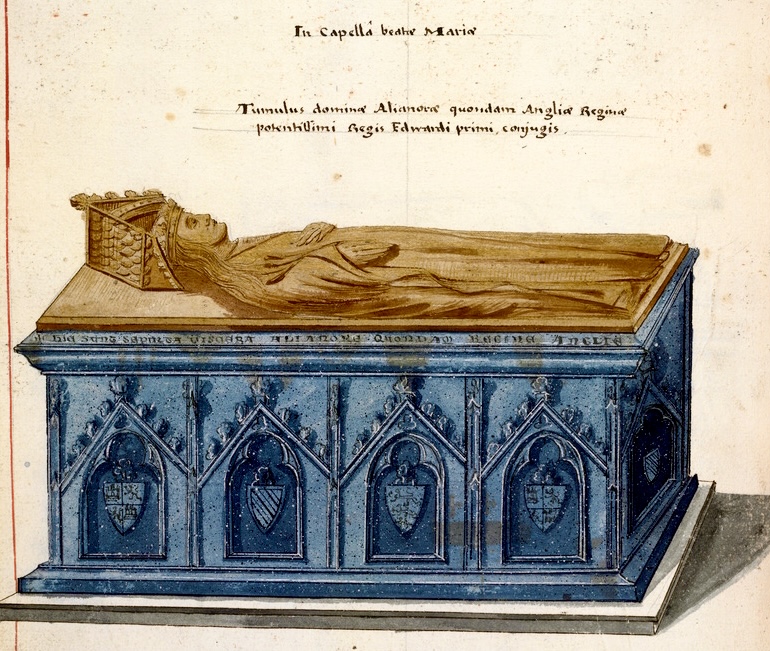 In Capellâ beatæ Mariæ
Tumulus dominæ Alianoræ quondam Angliæ Reginæ
potentissimi Regis Edwardi primi, conjugis.
Hic sunt sepulta viscera ALIANORE · QUONDAM REGINE ANGLIE